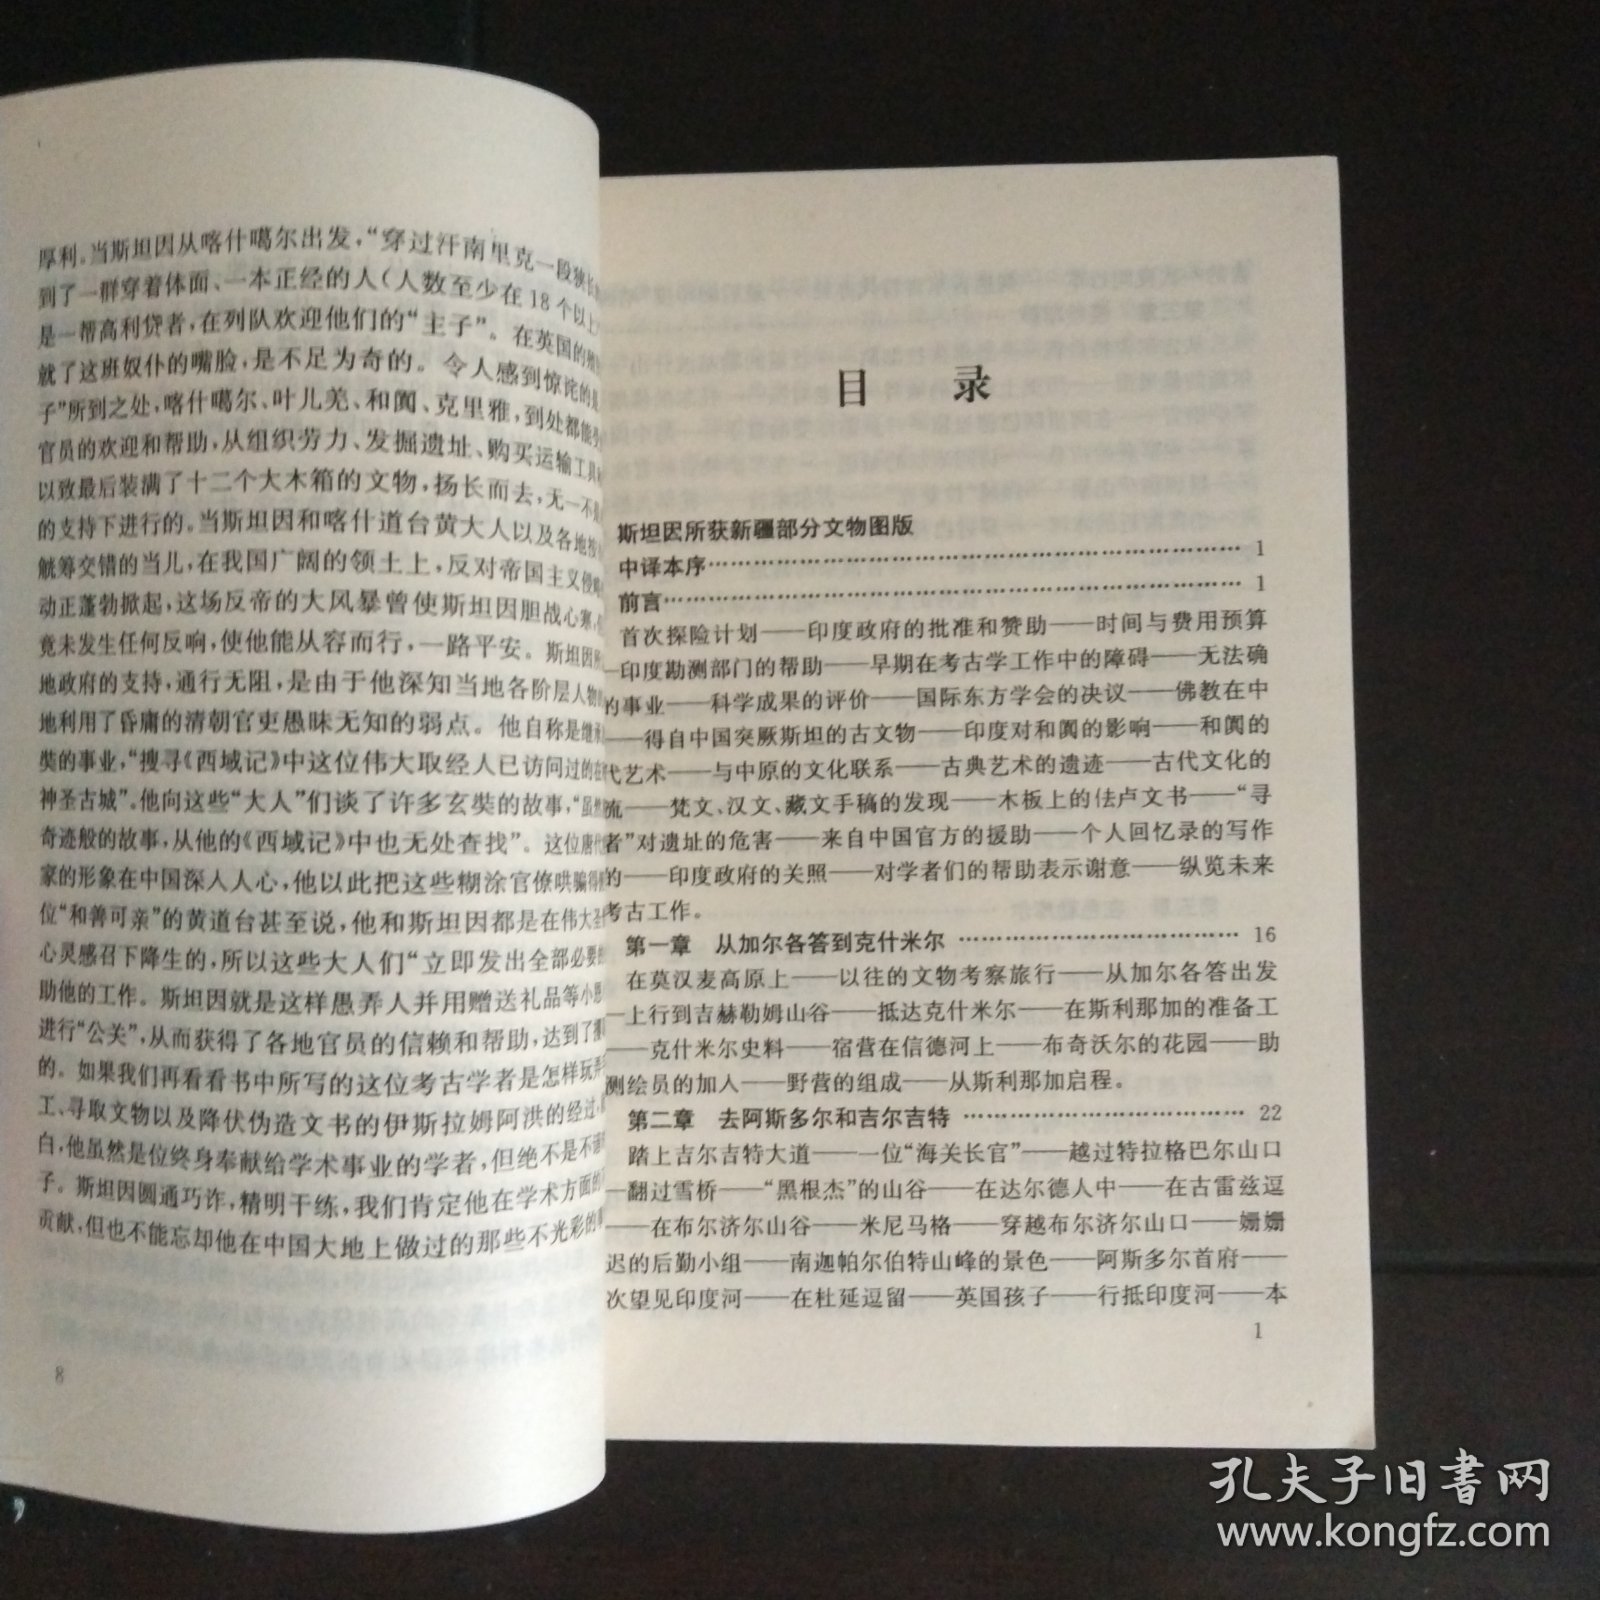 厚利。当斯坦因从喀什噶尔出发，“穿过汗南里克一段狭长
到了一群穿着体面、一本正经的人（人数至少在18个以上
是一帮高利贷者，在列队欢迎他们的“主子”。在英国的
就了这班奴仆的嘴脸，是不足为奇的。令人感到惊诧的是
子”所到之处，喀什噶尔、叶儿羌、和阗、克里雅，到处都能受
官员的欢迎和帮助，从组织劳力、发掘遗址、购买运输工具
以致最后装满了十二个大木箱的文物，扬长而去，无一不是
的支持下进行的。当斯坦因和喀什道台黄大人以及各地按
觥筹交错的当儿，在我国广阔的领土上，反对帝国主义侵略
动正蓬勃掀起，这场反帝的大风暴曾使斯坦因胆战心寒，
竟未发生任何反响，使他能从容而行，一路平安。斯坦因所
地政府的支持，通行无阻，是由于他深知当地各阶层人物
地利用了昏庸的清朝官吏愚昧无知的弱点。他自称是继承
奘的事业，“搜寻《西域记》中这位伟大取经人已访问过的在
神圣古城”。他向这些“大人”们谈了许多玄奘的故事，“虽然
奇迹般的故事，从他的《西域记》中也无处查找”。这位唐代
家的形象在中国深入人心，他以此把这些糊涂官僚哄骗得
位“和善可亲”的黄道台甚至说，他和斯坦因都是在伟大圣
心灵感召下降生的，所以这些大人们“立即发出全部必要的
助他的工作。斯坦因就是这样愚弄人并用赠送礼品等小恩
进行“公关”，从而获得了各地官员的信赖和帮助，达到了
的。如果我们再看看书中所写的这位考古学者是怎样玩弄
工、寻取文物以及降伏伪造文书的伊斯拉姆阿洪的经过，
白，他虽然是位终身奉献给学术事业的学者，但绝不是不
子。斯坦因圆通巧诈，精明干练，我们肯定他在学术方面的
贡献，但也不能忘却他在中国大地上做过的那些不光彩的
8
目 录
斯坦因所获新疆部分文物图版
中译本序…………………………………………… 1
前言……………………………………………… 1
首次探险计划——印度政府的批准和赞助——时间与费用预算
—印度勘测部门的帮助——早期在考古学工作中的障碍——无法确
的事业——科学成果的评价——国际东方学会的决议——佛教在中
——得自中国突厥斯坦的古文物——印度对和阗的影响——和阗的
代艺术——与中原的文化联系——古典艺术的遗迹——古代文化的
流——梵文、汉文、藏文手稿的发现——木板上的佉卢文书——“寻
者”对遗址的危害——来自中国官方的援助——个人回忆录的写作
的——印度政府的关照——对学者们的帮助表示谢意——纵览未来
考古工作。
第一章 从加尔各答到克什米尔 …………………………… 16
在莫汉麦高原上——以往的文物考察旅行——从加尔各答出发
—上行到吉赫勒姆山谷——抵达克什米尔——在斯利那加的准备工
——克什米尔史料——宿营在信德河上——布奇沃尔的花园——助
测绘员的加入——野营的组成——从斯利那加启程。
第二章 去阿斯多尔和吉尔吉特 …………………………… 22
踏上吉尔吉特大道——一位“海关长官”——越过特拉格巴尔山口
—翻过雪桥——“黑根杰”的山谷——在达尔德人中——在古雷兹逗
——在布尔济尔山谷——米尼马格——穿越布尔济尔山口——姗姗
迟的后勤小组——南迦帕尔伯特山峰的景色——阿斯多尔首府——
次望见印度河——在杜延逗留——英国孩子——行抵印度河——本
1
孔夫子旧书网
www.kongfz.com